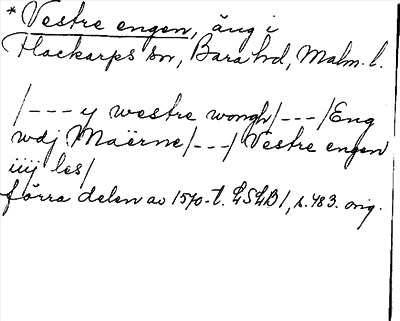 * Vestre engen, äng i
Flackarps sn, Bara hd, Malm. l.
/--- y westre wongh/---/Eng
wdj Maërne/---/ Vestre engen
iiij les/
förra delen av 1570-t. LSLB 1, s. 483. orig.